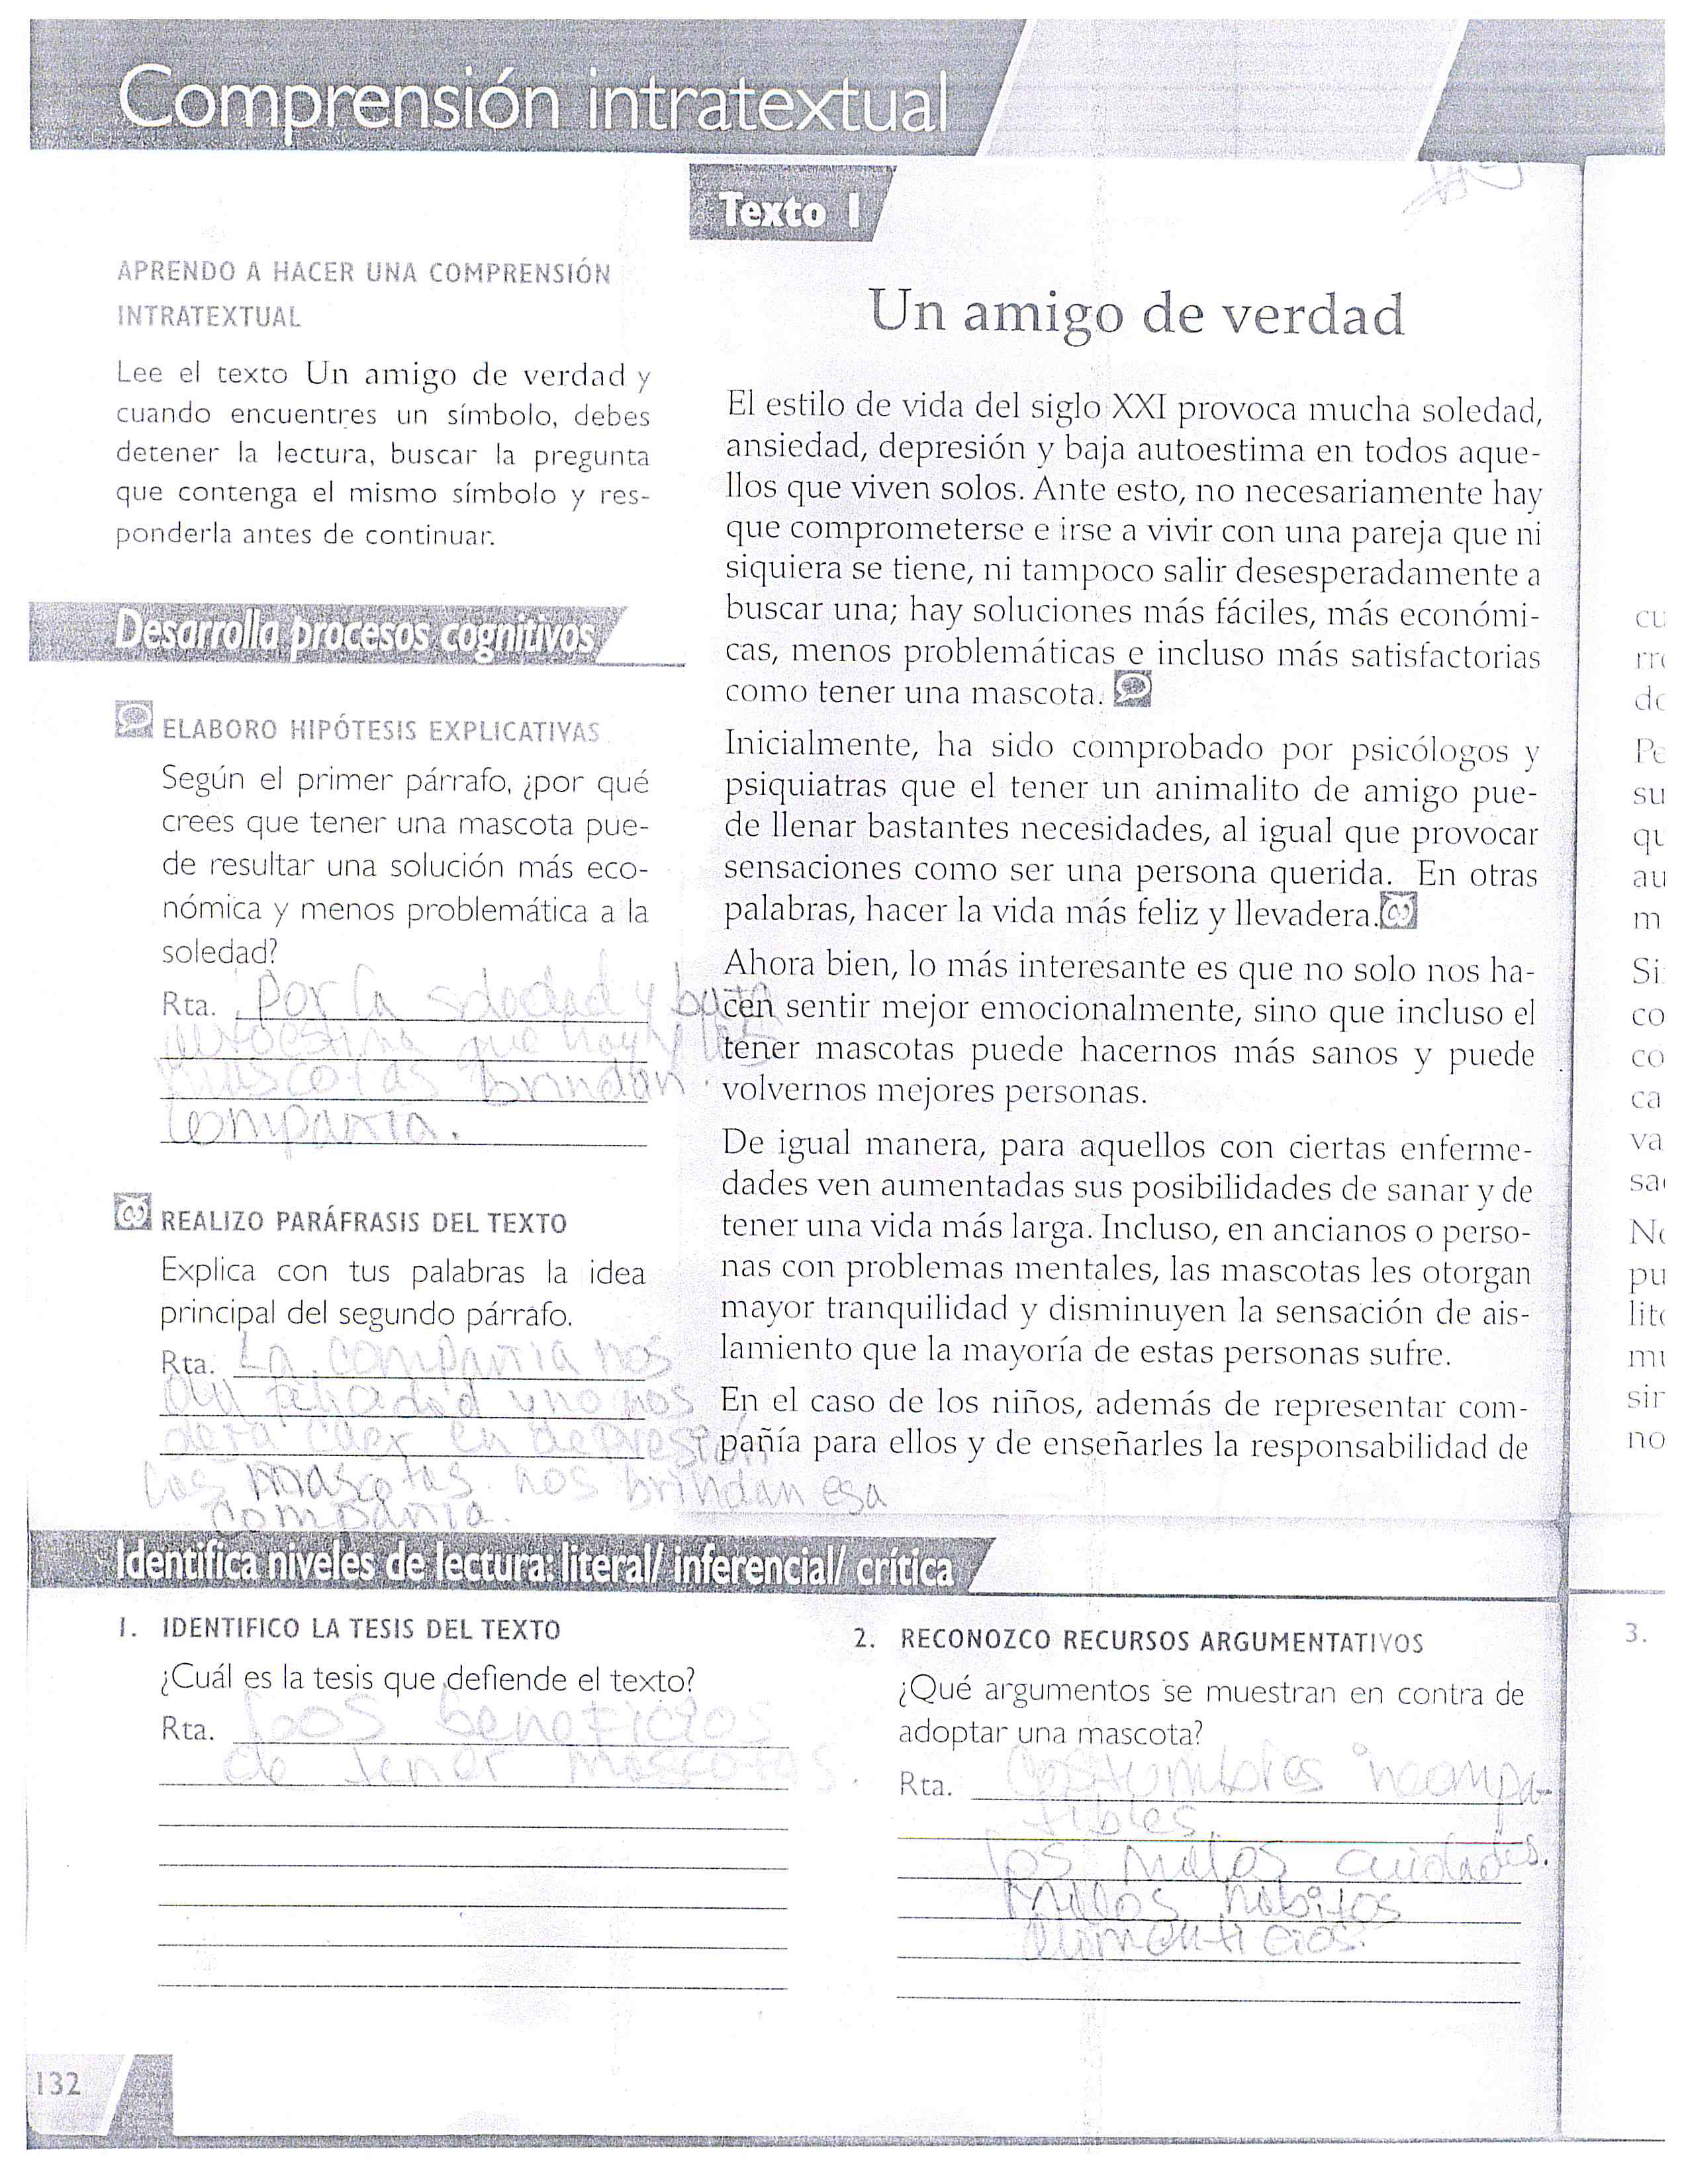 Comprensión intratextual
APRENDO A HACER UNA COMPRENSIÓN
INTRATEXTUAL
Lee el texto Un amigo de verdad y
cuando encuentres un símbolo, debes
detener la lectura, buscar la pregunta
que contenga el mismo símbolo y res-
ponderla antes de continuar.
Desarrolla procesos cognitivos
ELABORO HIPÓTESIS EXPLICATIVAS
Según el primer párrafo, ¿por qué
crees que tener una mascota pue-
de resultar una solución más eco-
nómica y menos problemática a la
soledad?
Rta. Por la soledad y baja
autoestima que hay y las
mascotas brindan
compañia.
REALIZO PARÁFRASIS DEL TEXTO
Explica con tus palabras la idea
principal del segundo párrafo.
Rta. La compañia nos
y no nos
deja caer en depresión
las mascotas nos brindan esa
compañia.
Texto 1
Un amigo de verdad
El estilo de vida del siglo XXI provoca mucha soledad,
ansiedad, depresión y baja autoestima en todos aque-
llos que viven solos. Ante esto, no necesariamente hay
que comprometerse e irse a vivir con una pareja que ni
siquiera se tiene, ni tampoco salir desesperadamente a
buscar una; hay soluciones más fáciles, más económi-
cas, menos problemáticas e incluso más satisfactorias
como tener una mascota.
Inicialmente, ha sido comprobado por psicólogos y
psiquiatras que el tener un animalito de amigo pue-
de llenar bastantes necesidades, al igual que provocar
sensaciones como ser una persona querida. En otras
palabras, hacer la vida más feliz y llevadera.
Ahora bien, lo más interesante es que no solo nos ha-
cen sentir mejor emocionalmente, sino que incluso el
tener mascotas puede hacernos más sanos y puede
volvernos mejores personas.
De igual manera, para aquellos con ciertas enferme-
dades ven aumentadas sus posibilidades de sanar y de
tener una vida más larga. Incluso, en ancianos o perso-
nas con problemas mentales, las mascotas les otorgan
mayor tranquilidad y disminuyen la sensación de ais-
lamiento que la mayoría de estas personas sufre.
En el caso de los niños, además de representar com-
pañía para ellos y de enseñarles la responsabilidad de
Identifica niveles de lectura: literal/ inferencial/ crítica
1. IDENTIFICO LA TESIS DEL TEXTO
¿Cuál es la tesis que defiende el texto?
Rta. Los beneficios
de tener mascotas.
2. RECONOZCO RECURSOS ARGUMENTATIVOS
¿Qué argumentos se muestran en contra de
adoptar una mascota?
Rta. Costumbres incompa-
tibles
los malos cuidados.
Malos habitos
alimenticios.
132
cu
rr
do
Pe
su
qu
au
m
Si
co
co
ca
va
sa
No
pu
lit
mu
sir
no
3.